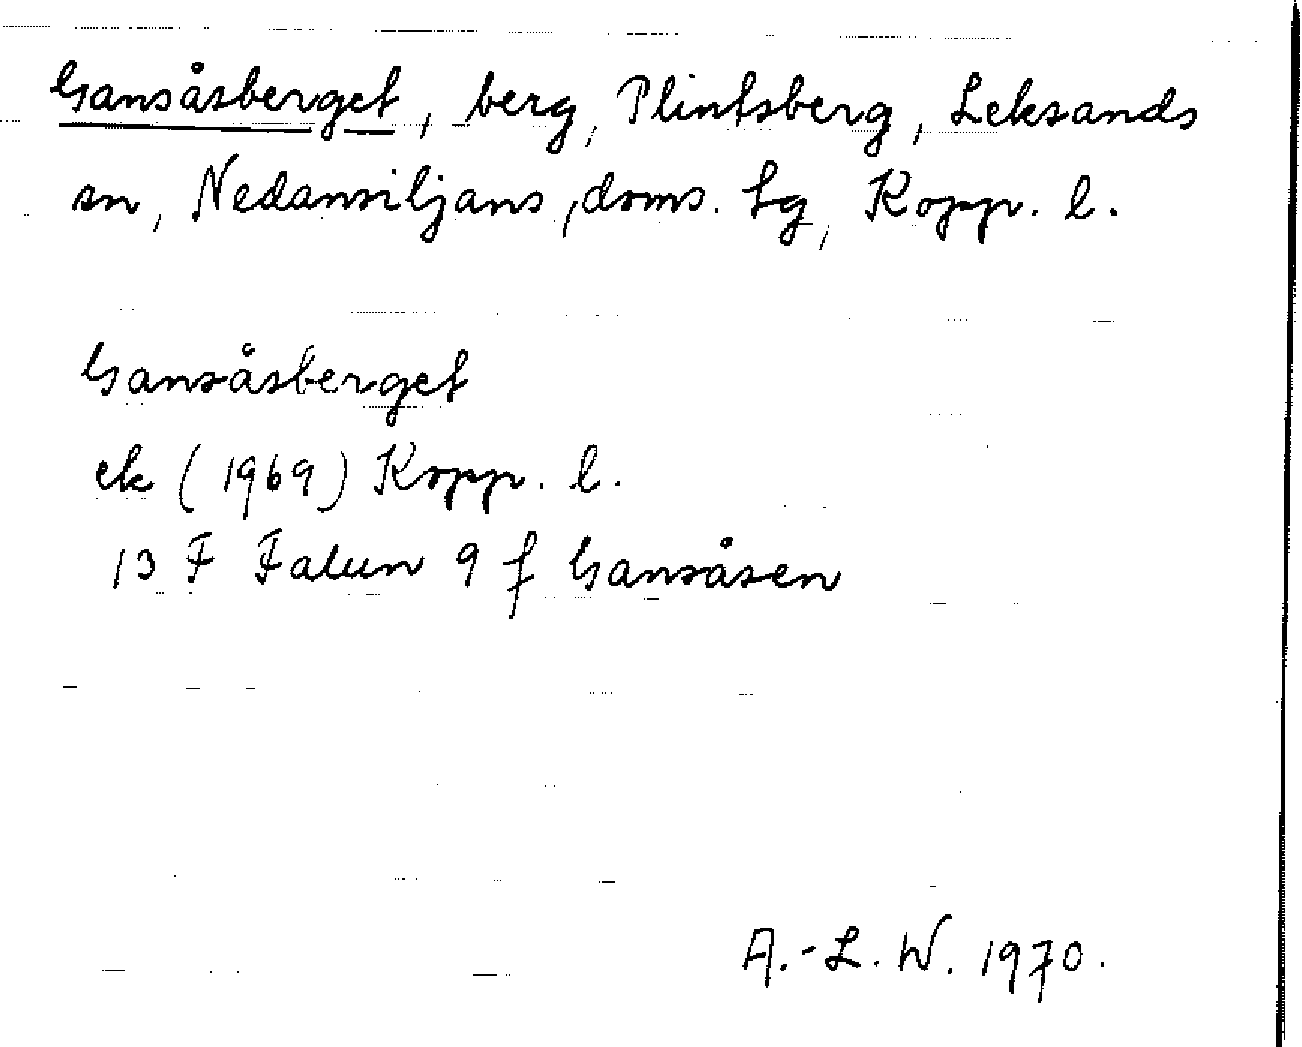 Gansåsberget, berg, Plintsberg, Leksands
sn, Nedansiljans, doms. tg, Kopp. l.
Gansåsberget
ek (1969) Kopp. l.
13 F Falun 9 f Gansåsen
A.-L. W. 1970.